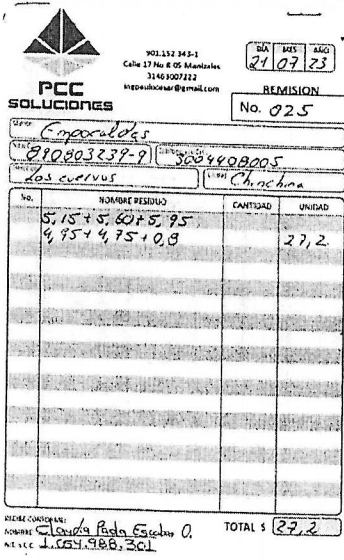 901.152.343-1
Calle 17 No 8 05 Manizales
31463007222
DÍA MES AÑO
21 07 23
PCC
SOLUCIONES
REMISION
No. 025
Empocaldas
890803239-9
3004408005
Los cuervos
Chinchina
No. NOMBRE RESIDUO CANTIDAD UNIDAD
5,15 + 5,60 + 5,95
4,95 + 4,75 + 0,8 27,2
RECIBE CONFORME:
NOMBRE Claudia Paola Escobar O.
NIT o C.C. 1.054.988.301
TOTAL $ 27,2